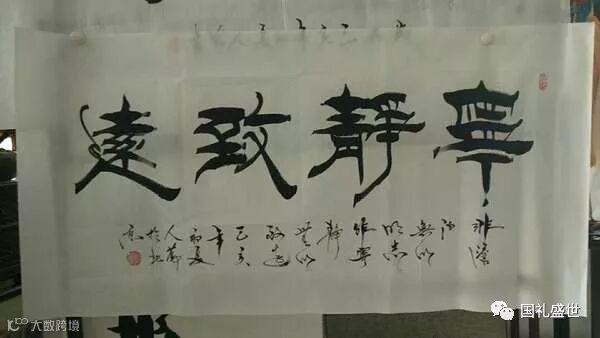 寧靜致遠
非澹
泊
無以
明志
非寧
靜
無以
致遠
己亥
年
初夏
国礼盛世
大数跨境